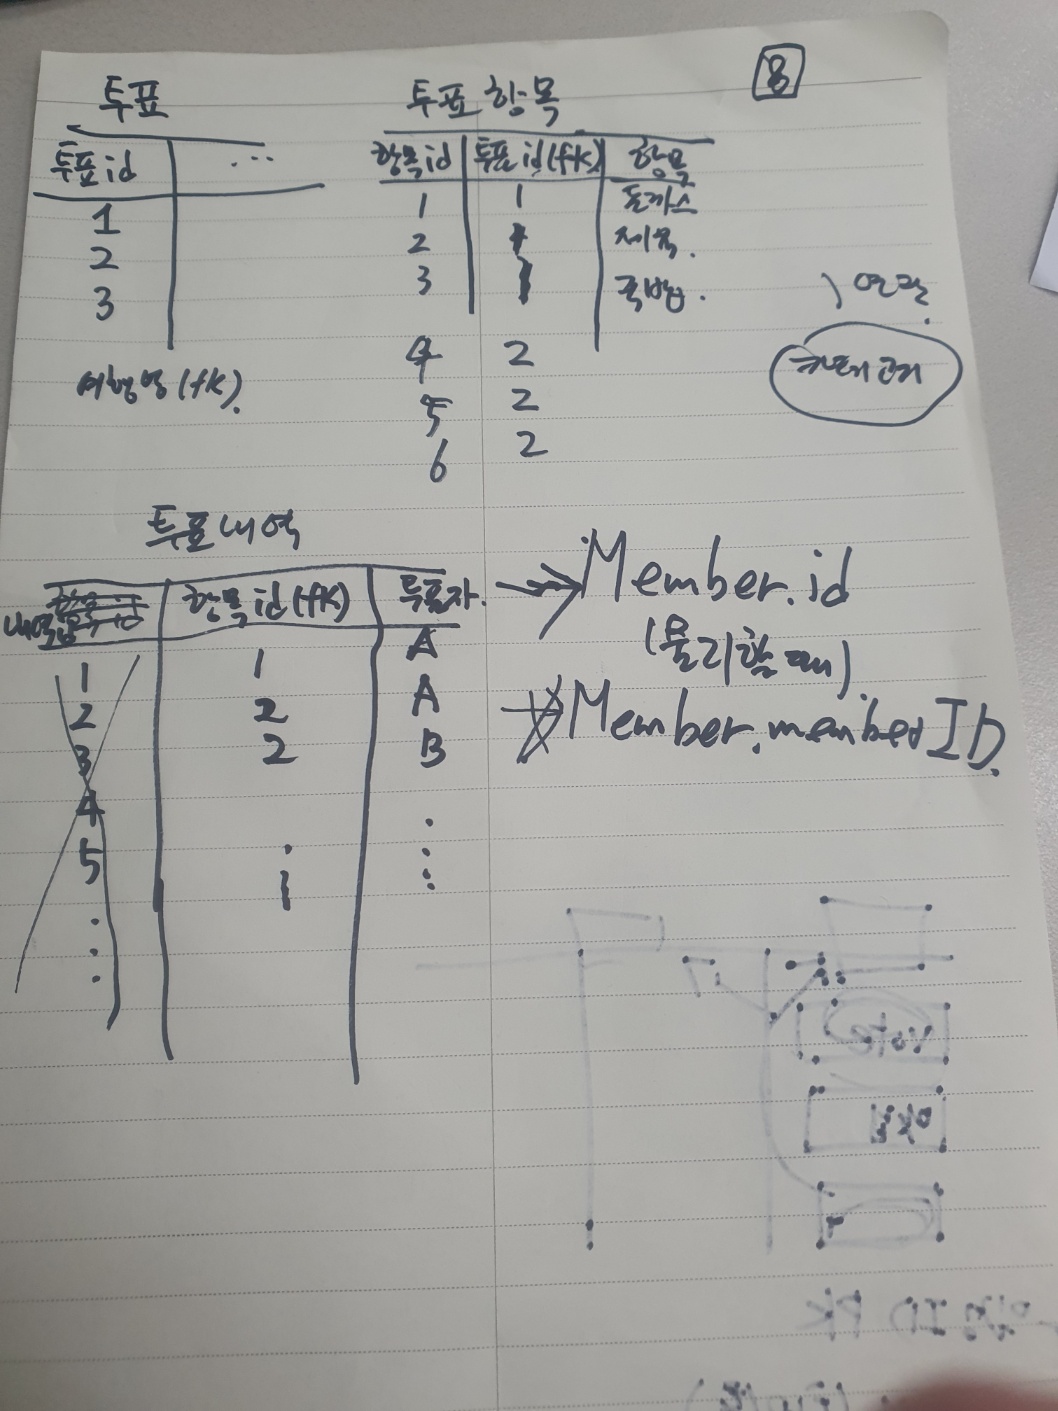 8
투표
투표id ...
1
2
3
여행명(fk).
투표 항목
항목id 투표id(fk) 항목
1 1 돈까스
2 1 제육.
3 1 국밥.
4 2
5 2
6 2
연관
투표내역
항목id(fk) 투표자.
1 1 A
2 2 A
3 2 B
4
5
Member.id
(물리할때).
Member.memberID.
vote
일정
일정ID PK